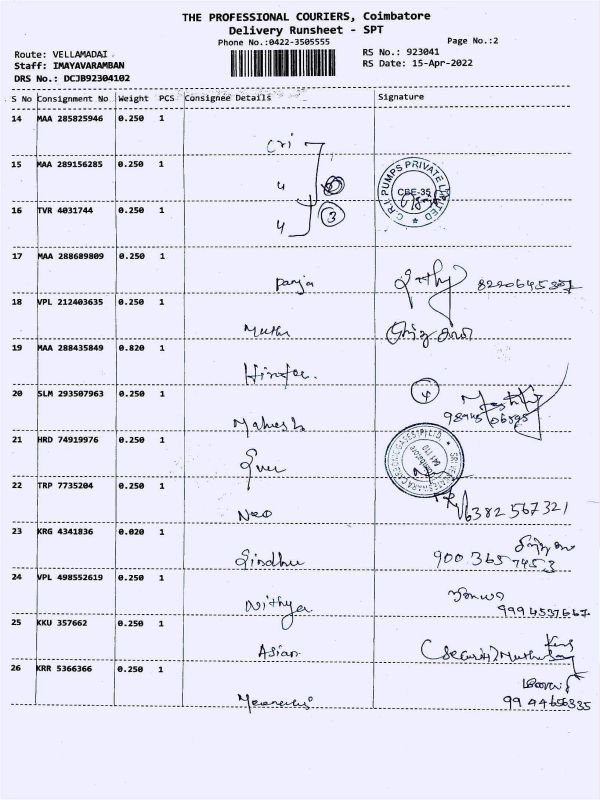 THE PROFESSIONAL COURIERS, Coimbatore
Delivery Runsheet - SPT
Phone No.:0422-3505555
Page No.:2
Route: VELLAMADAI
Staff: IMAYAVARAMBAN
DRS No.: DCJB92304102
RS No.: 923041
RS Date: 15-Apr-2022
S No Consignment No Weight PCS Consignee Details Signature
14 MAA 285825946 0.250 1
cri
15 MAA 289156285 0.250 1
C.R.I. PUMPS PRIVATE LIMITED
CBE-35
16 TVR 4031744 0.250 1
3
17 MAA 288689809 0.250 1
8220645307
18 VPL 212403635 0.250 1
Muthu
19 MAA 288435849 0.820 1
20 SLM 293507963 0.250 1
4
Mahesh
21 HRD 74919976 0.250 1
22 TRP 7735204 0.250 1
Neo
6382567321
23 KRG 4341836 0.020 1
Sindhu
900 365 7453
24 VPL 498552619 0.250 1
Nithya
9994537667
25 KKU 357662 0.250 1
Asian
(Security)
26 KRR 5366366 0.250 1
Meenatchi
99 44656335